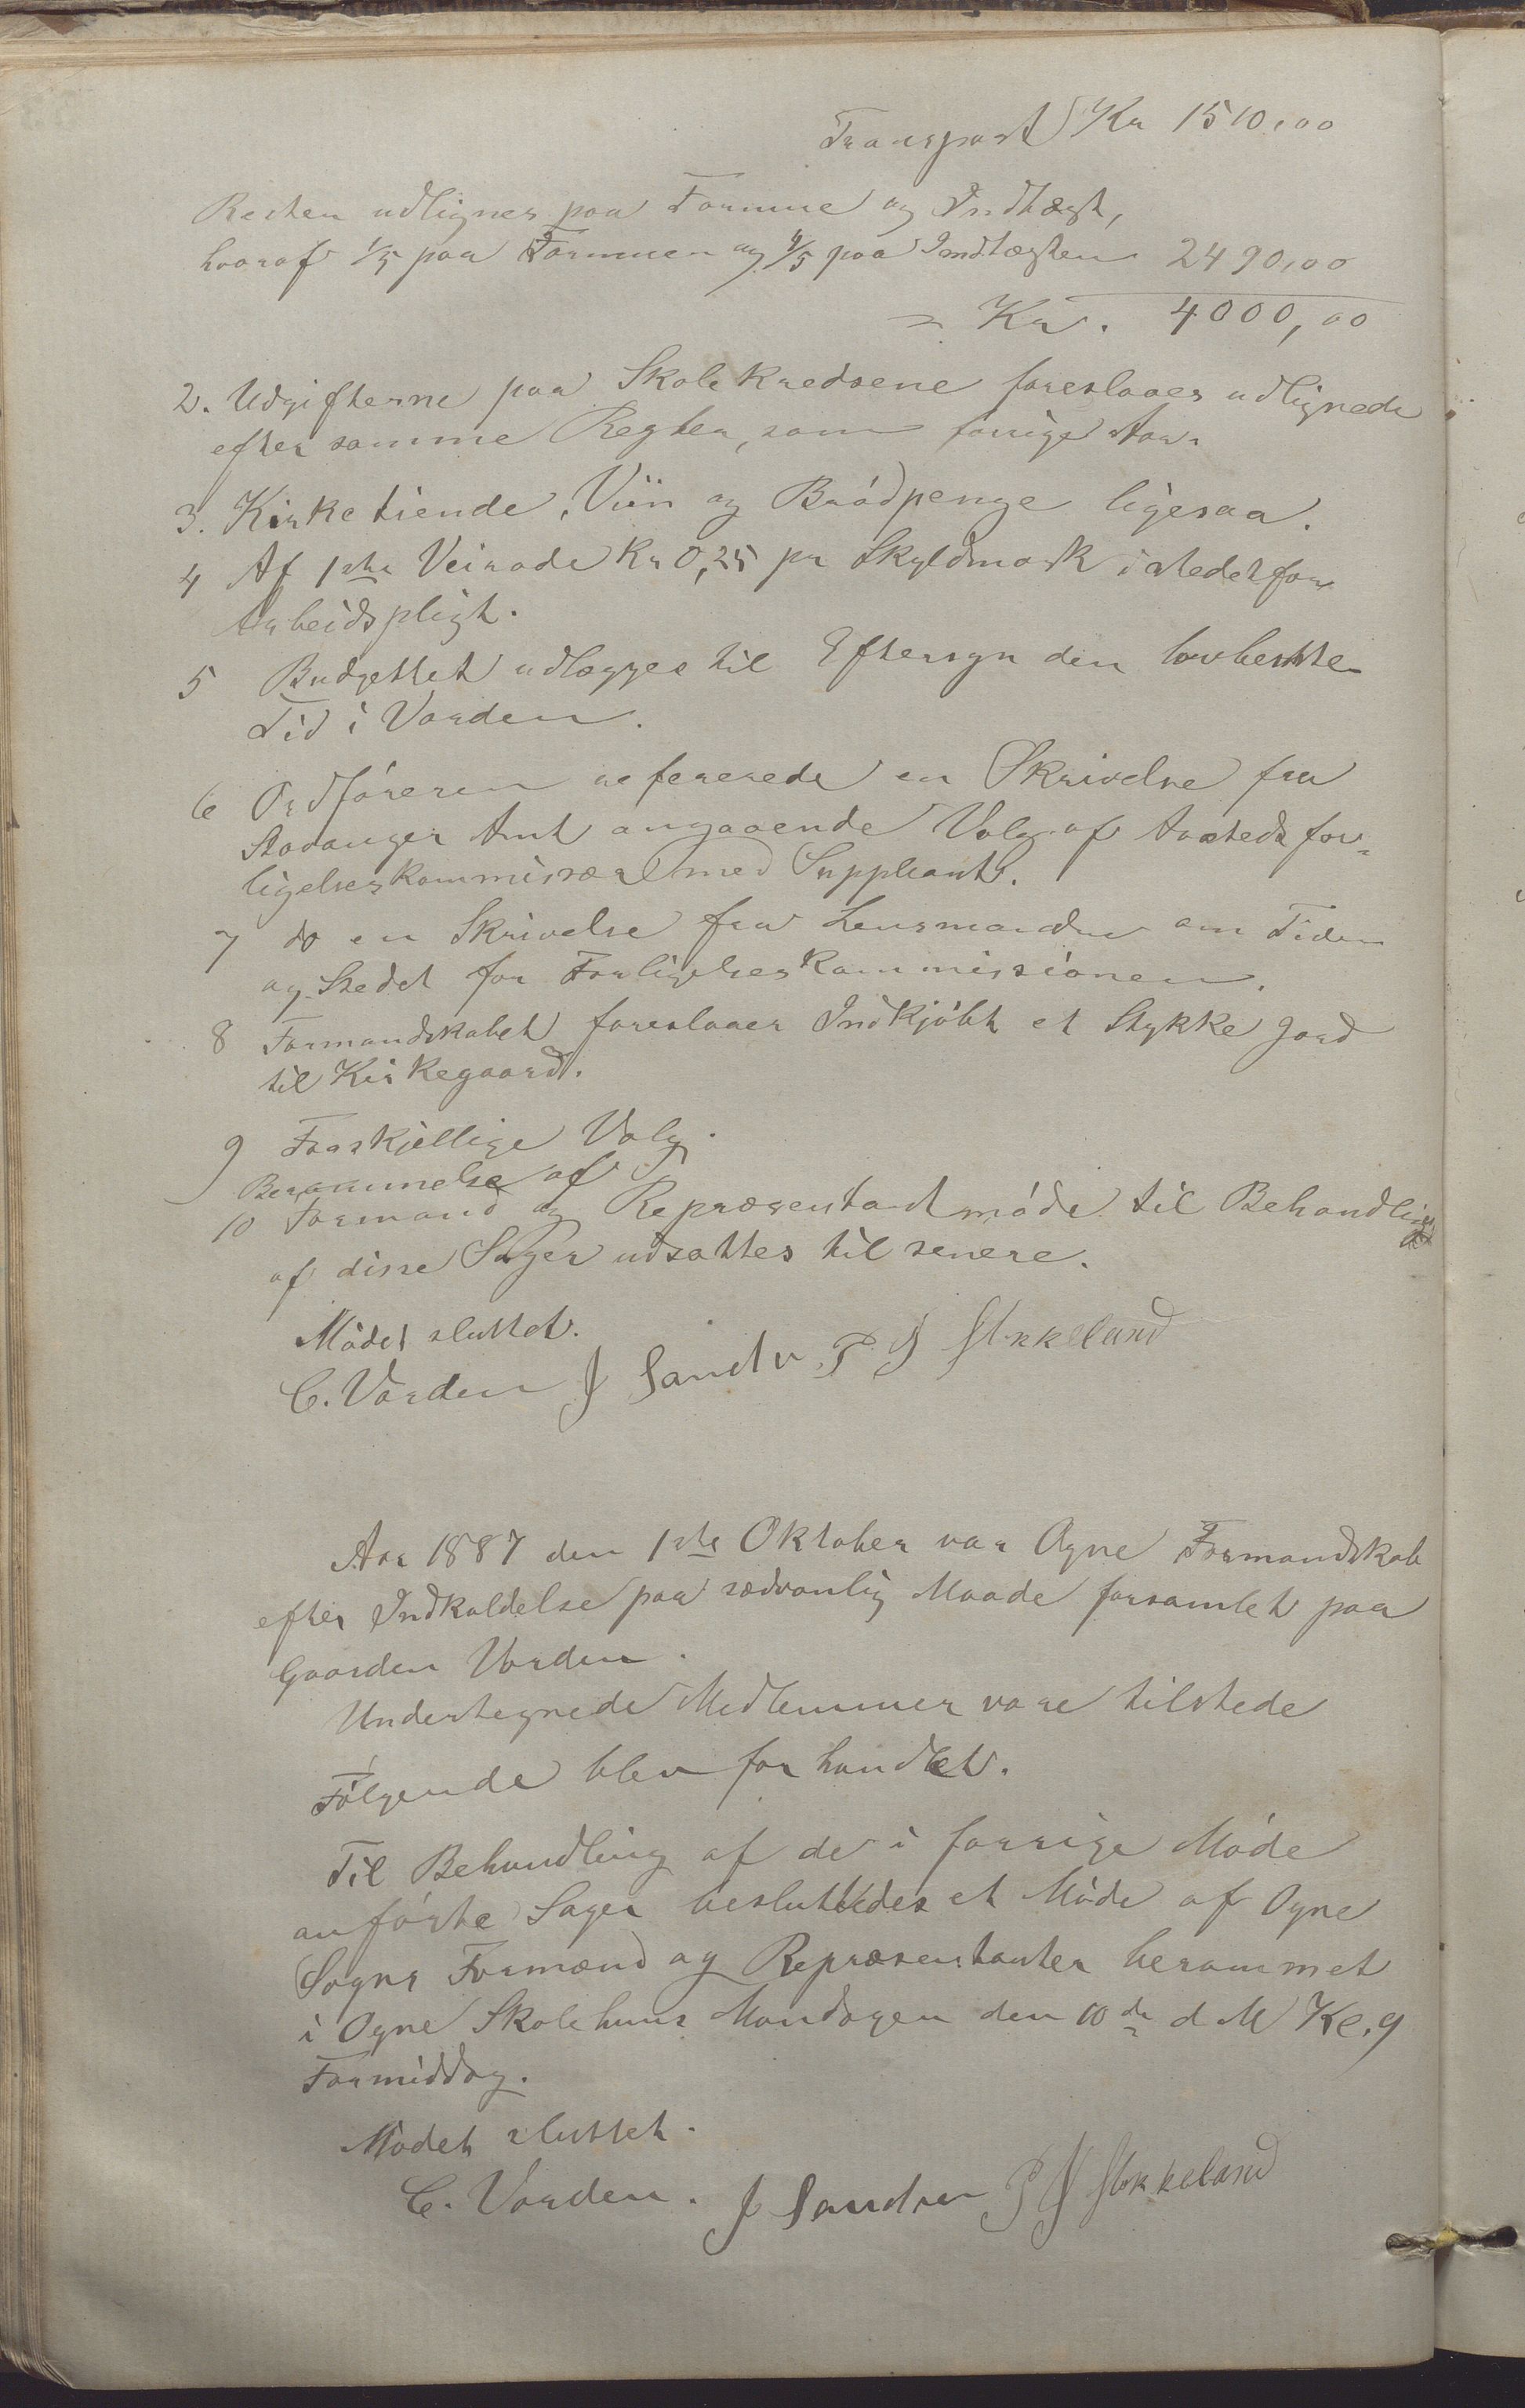 Transport Kr 1510,00
Resten udlignes paa Formue og Indtægt,
hvoraf 1/5 paa Formuen og 4/5 paa Indtægten 2490,00
= Kr. 4000,00
2. Udgifterne paa Skolekredsene foreslaaes udlignede
efter samme Regler, som forrige Aar.
3. Kirketiende, Viin og Brødpenge ligesaa.
4 Af 1ste Veirode Kr 0,25 pr Skyldmark istedetfor
Arbeidspligt.
5 Budgettet udlægges til Eftersyn den lovbestte
Tid i Varden.
6 Ordføreren refererede en Skrivelse fra
Stavanger Amt angaaende Valg af Aastedsfor-
ligelseskommisær med Suppleant.
7 do en Skrivelse fra Lensmanden om Tiden
og Stedet for Forligelseskommissionen.
8 Formandskabet foreslaaer Indkjøbt et Stykke Jord
til Kirkegaard.
9 Forskjellige Valg.
Berammelse af
10 Formand og Repræsentantmøde til Behandling
af disse Sager udsattes til senere.
Mødet sluttet.
C. Varden J Sandv P J Stokkeland
Aar 1887 den 1ste Oktober var Ogne Formandskab
efter Indkaldelse paa sædvanlig Maade forsamlet paa
Gaarden Varden.
Undertegnede Medlemmer vare tilstede
Følgende blev forhandlet.
Til Behandling af de i forrige Møde
anførte Sager besluttedes et Møde af Ogne
Sogns Formænd og Repræsentanter berammet
i Ogne Skolehuus Mandagen den 10de d M Kl. 9
Formiddag.
Mødet sluttet.
C. Varden. J Sandven P J Stokkeland